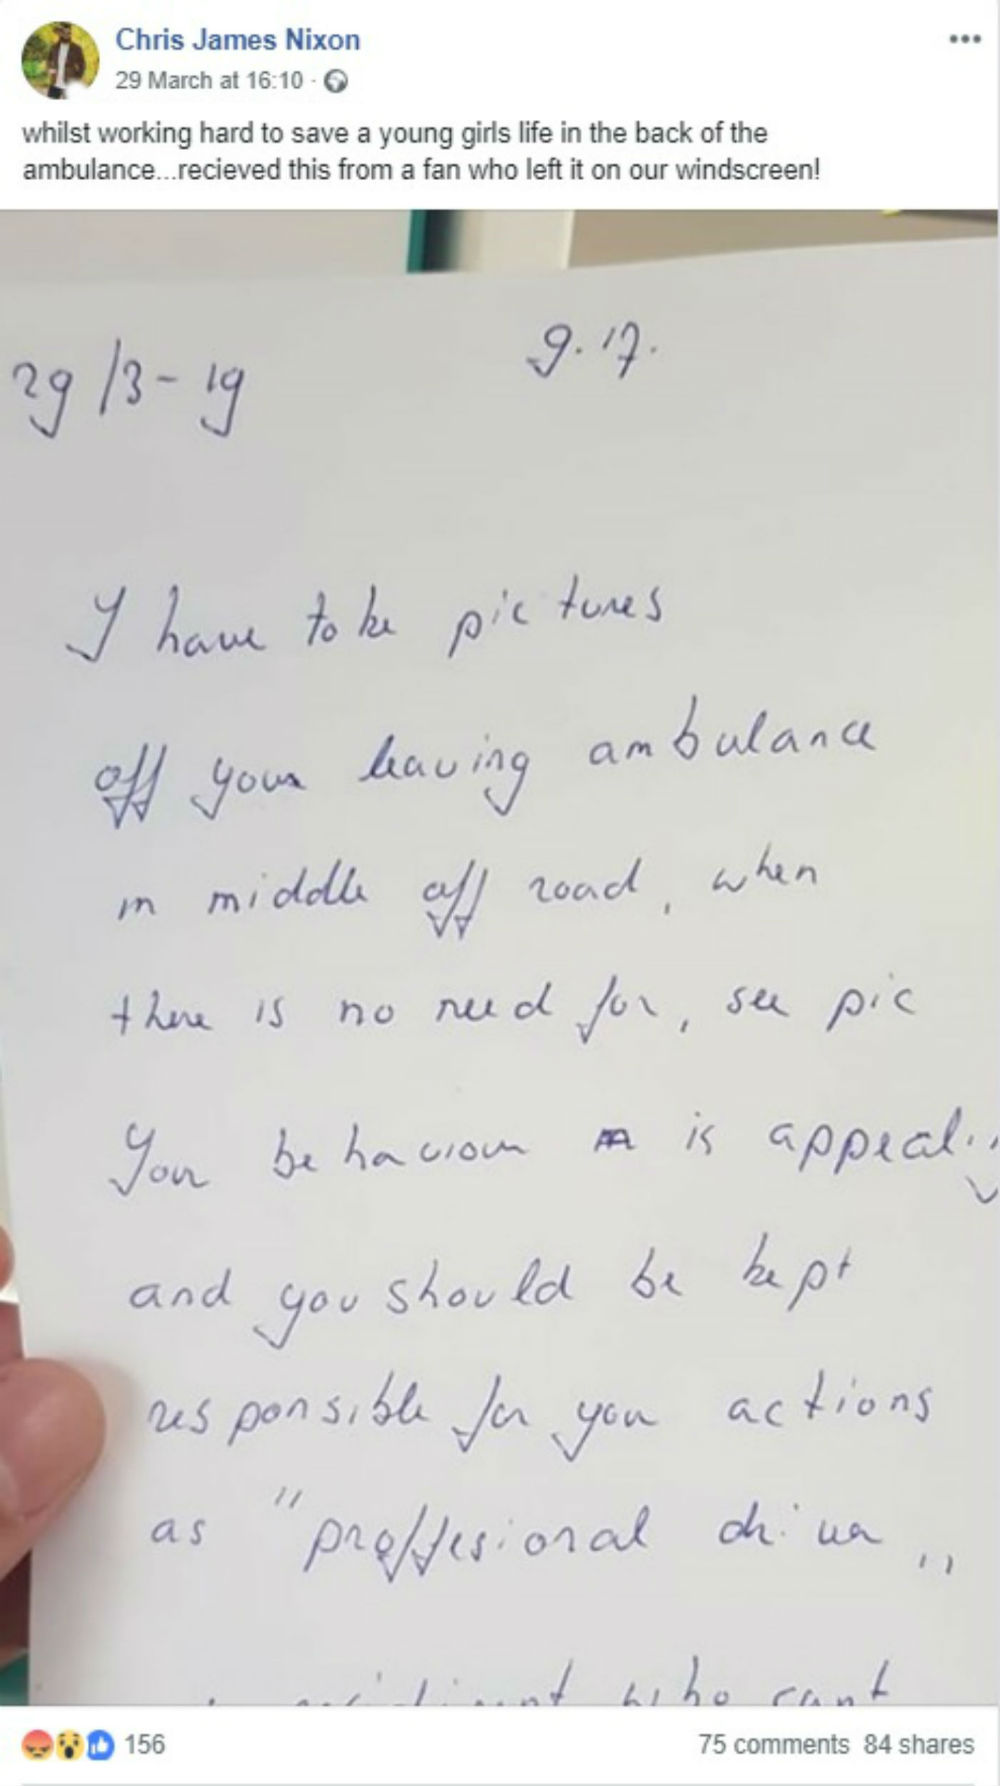 Chris James Nixon
29 March at 16:10 ·
whilst working hard to save a young girls life in the back of the
ambulance...recieved this from a fan who left it on our windscreen!
29/3-19 9.17.
I have take pictures
off your leaving ambulance
in middle off road, when
there is no need for, see pic
Your behaviour is
and you should be kept
responsible for you actions
as "proffesional driver"
who cant
156
75 comments 84 shares